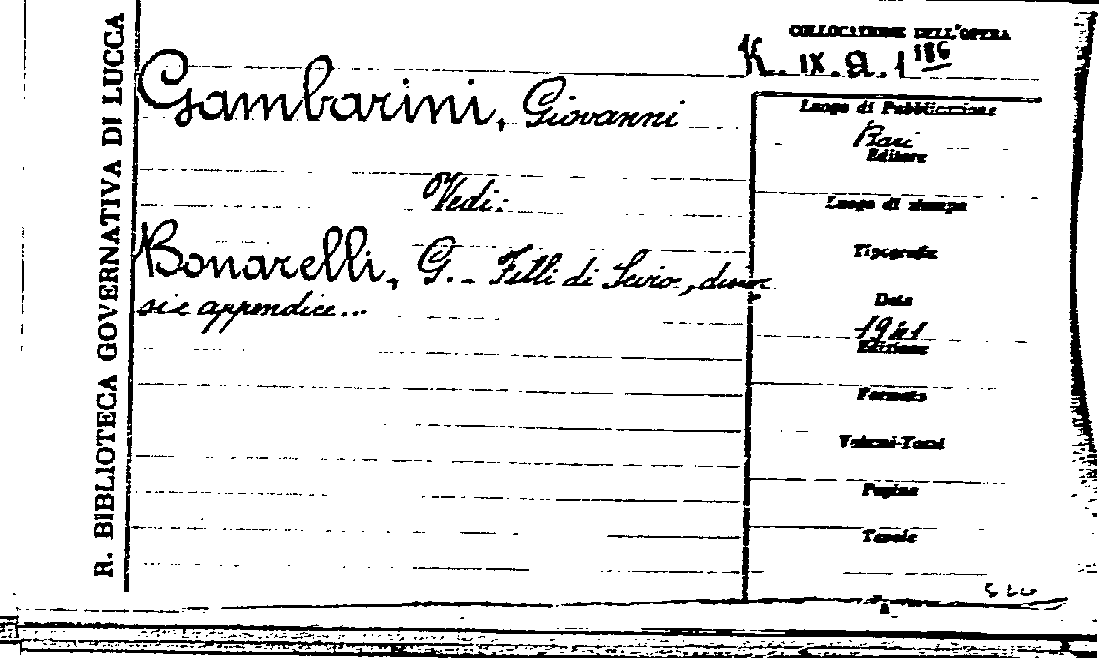 R. BIBLIOTECA GOVERNATIVA DI LUCCA
COLLOCAZIONE DELL'OPERA
K. IX. A. 1 186
Gambarini, Giovanni
Vedi:
Bonarelli, G. - Filli di Sciro, discor
si e appendice...
Luogo di Pubblicazione
Bari
Editore
Luogo di stampa
Tipografia
Data
1941
Edizione
Formato
Volumi-Tomi
Pagine
Tavole